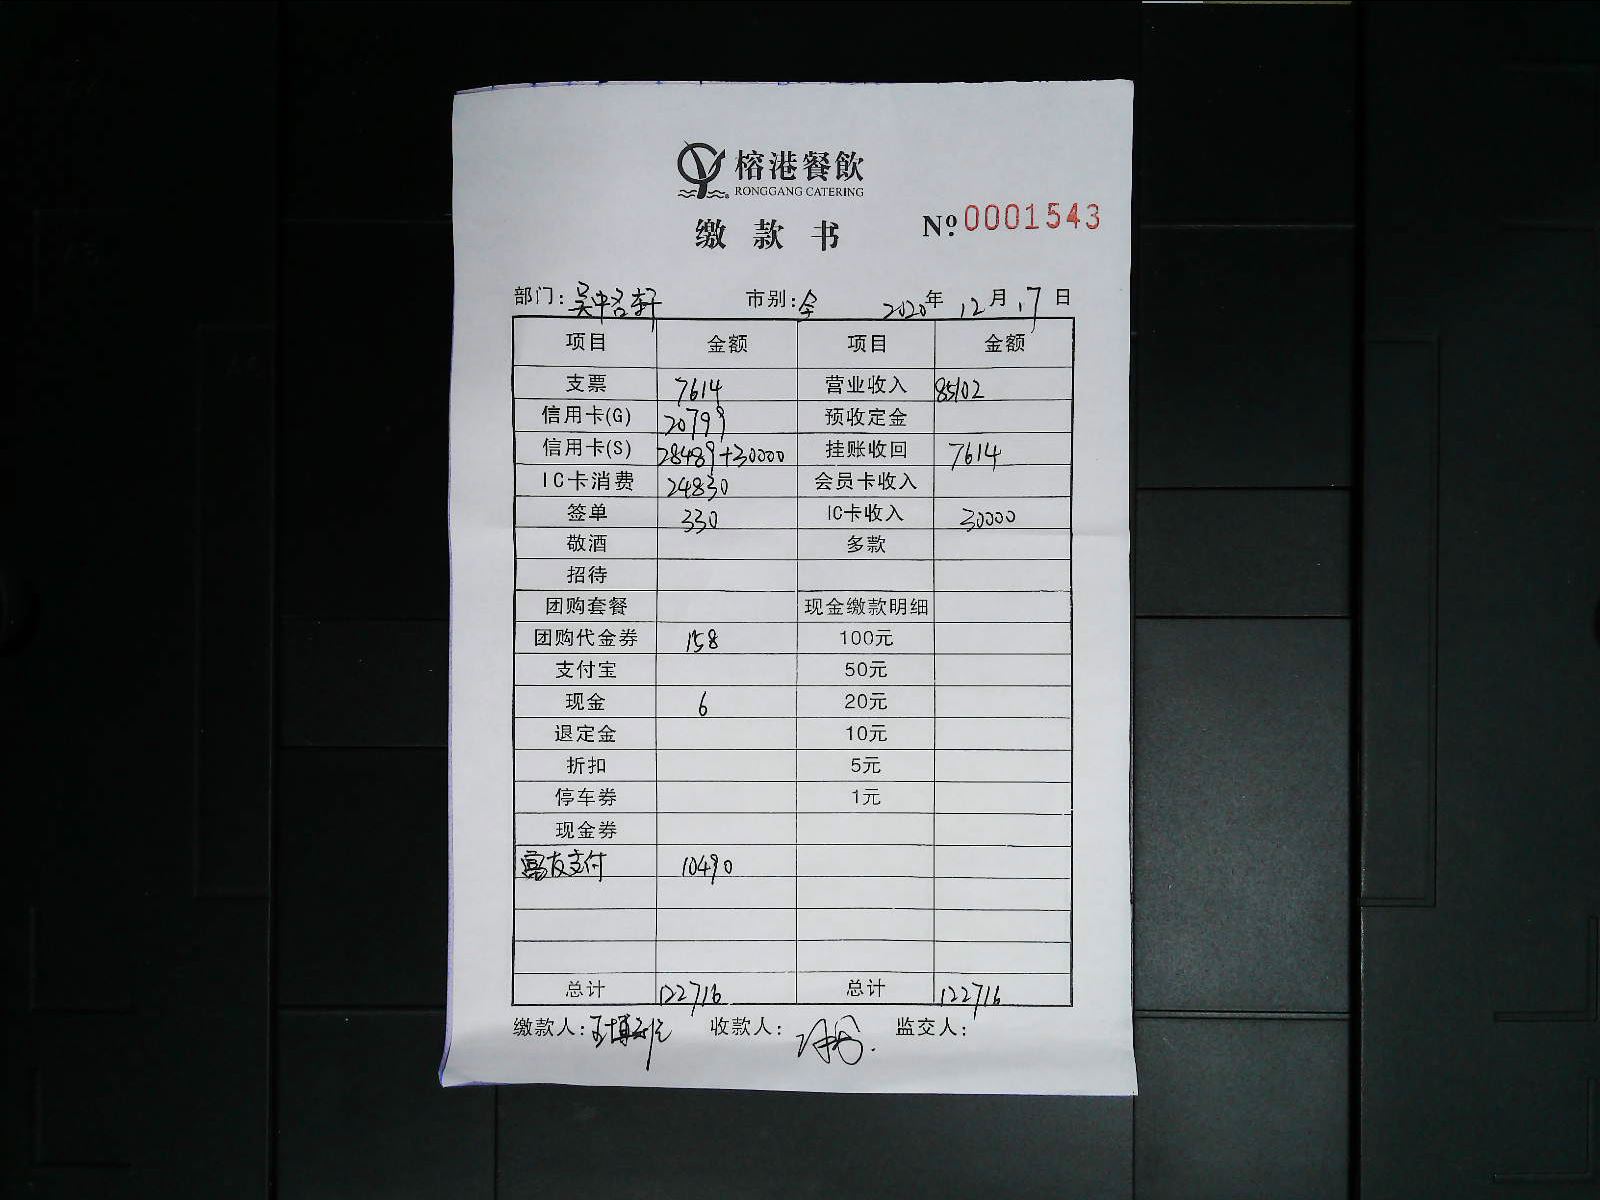 榕港餐飲
RONGGANG CATERING
缴款书
№ 0001543
部门: 吴中名轩 市别: 全 2020年12月17日
项目 金额 项目 金额
支票 7614 营业收入 85102
信用卡(G) 20799 预收定金
信用卡(S) 28489+30000 挂账收回 7614
IC卡消费 24830 会员卡收入
签单 330 IC卡收入 30000
敬酒 多款
招待
团购套餐 现金缴款明细
团购代金券 158 100元
支付宝 50元
现金 6 20元
退定金 10元
折扣 5元
停车券 1元
现金券
富友支付 10490
总计 122716 总计 122716
缴款人: 收款人: 监交人: